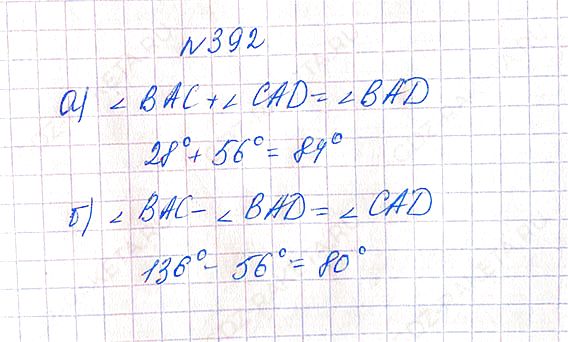 №392
а) ∠BAC+∠CAD=∠BAD
28°+56°=84°
б) ∠BAC-∠BAD=∠CAD
136°-56°=80°